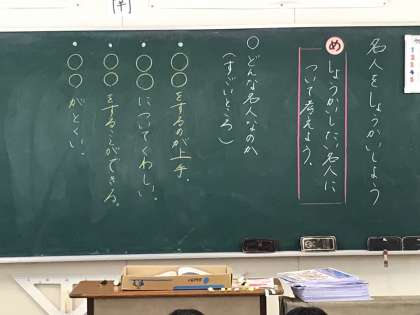 名人をしょうかいしよう
め
しょうかいしたい名人に
ついて考えよう。
○どんな名人なのか
(すごいところ)
・○○をするのが上手。
・○○についてくわしい。
・○○をすることができる。
・○○がとくい。